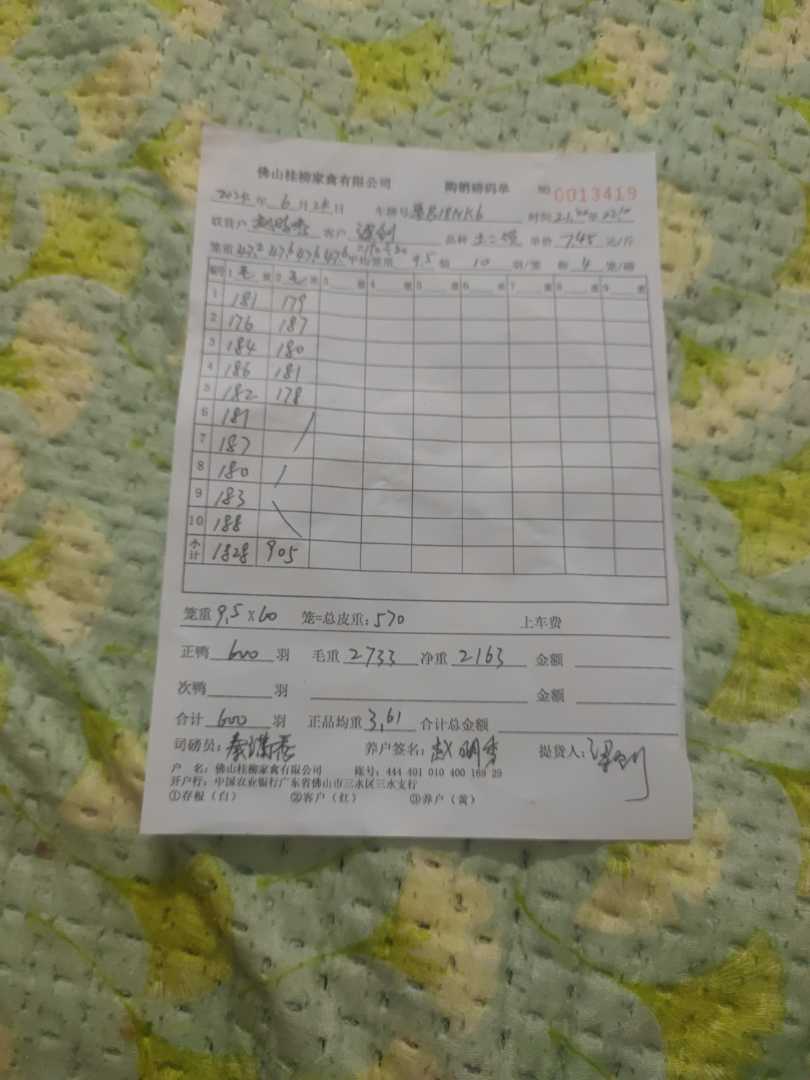 佛山桂柳家禽有限公司 购销磅码单 NO 0013419
2024年 6月24日 车牌号 时间
联营户 客户 品种 单价 7.45 元/斤
笼重 47.2 47.6 47.6 47.6 平均笼重 9.5 10 羽/笼 称 4 笼/磅
编号 1 毛 重 2 毛 重 3 重 4 重 5 重 6 重 7 重 8 重 9 重
1 181 179
2 176 187
3 184 180
4 186 181
5 182 178
6 181
7 187
8 180
9 183
10 188
小计 1828 905
笼重 9.5 X 60 笼=总皮重: 570 上车费
正鸭 600 羽 毛重 2733 净重 2163 金额
次鸭 羽 金额
合计 600 羽 正品均重 3.61 合计总金额
司磅员: 养户签名: 赵明 提货人:
户 名: 佛山桂柳家禽有限公司 账号: 444 401 010 400 169 29
开户行: 中国农业银行广东省佛山市三水区三水支行
①存根(白) ②客户(红) ③养户(黄)